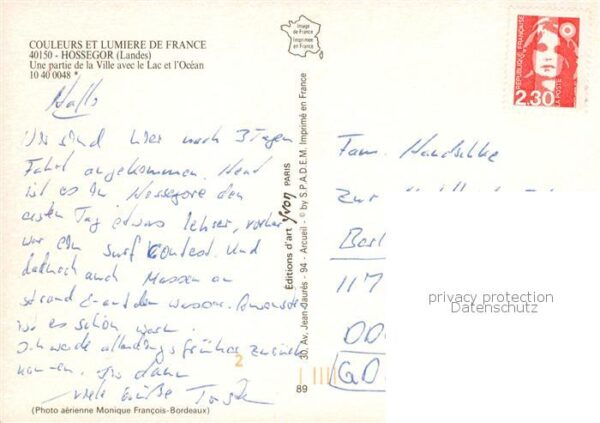 COULEURS ET LUMIERE DE FRANCE
40150 - HOSSEGOR (Landes)
Une partie de la Ville avec le Lac et l'Océan
10 40 0048 *
Hallo
Wir sind hier nach 3 Tagen
Fahrt angekommen. Heut
ist es in Hossegore den
ersten Tag etwas leerer, vorher
war ein Surf Contest. Und
dadurch auch Massen am
Strand und an dem Wasser.
ist es schön warm.
Ich werde allerdings früher zurück
kommen. bis dann
viele Grüße Torsten
(Photo aérienne Monique François-Bordeaux)
Image de France
Imprimée en France
Editions d'art Yvon PARIS
30, Av. Jean-Jaurès - 94 - Arcueil - © by S.P.A.D.E.M. Imprimé en France
89
2
REPUBLIQUE FRANÇAISE
LA POSTE
2,30
Fam. Handschke
Zur
Berl
117
DD
GD
privacy protection
Datenschutz